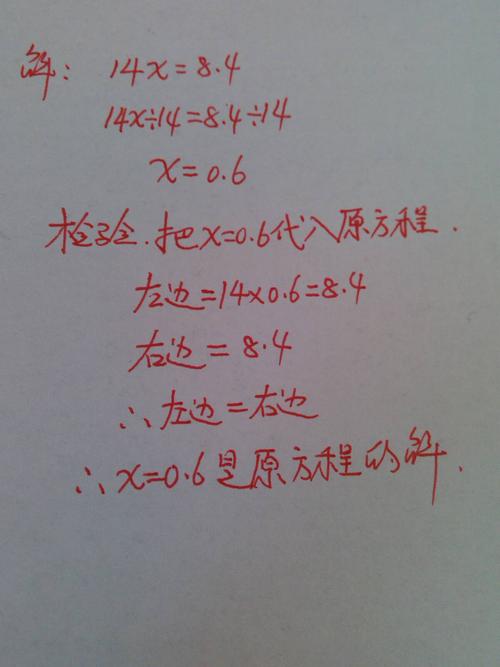 解：14x=8.4
14x÷14=8.4÷14
x=0.6
检验.把x=0.6代入原方程.
左边=14×0.6=8.4
右边=8.4
∴左边=右边
∴x=0.6是原方程的解.